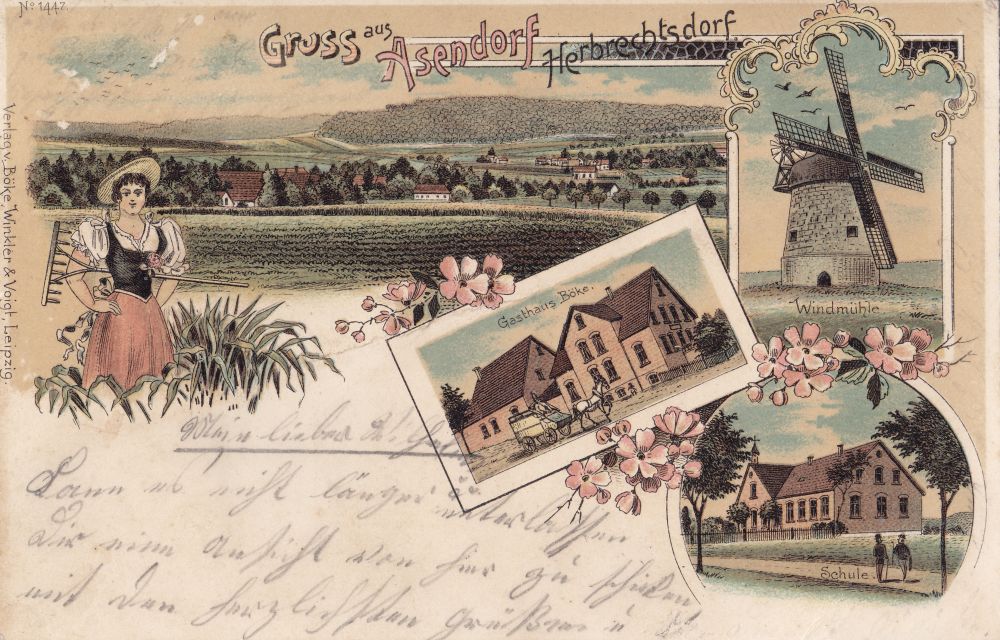 No 1447.
Gruss aus Asendorf Herbrechtsdorf.
Verlag v. Böke, Winkler & Voigt, Leipzig.
Windmühle
Gasthaus Böke.
Schule.
Mein lieber
Kann es nicht länger unterlassen
Dir eine Ansicht von hier zu schicken
mit den herzlichsten Grüßen u